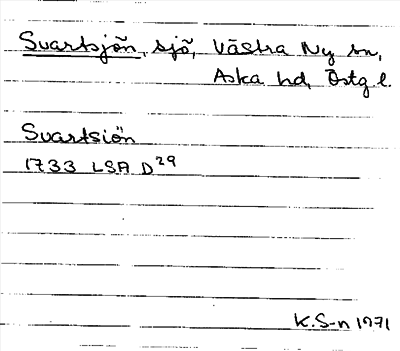 Svartsjön, sjö, Västra Ny sn,
Aska hd, Östg. l.
Svartsiön
1733 LSA D29
K.S-n 1971